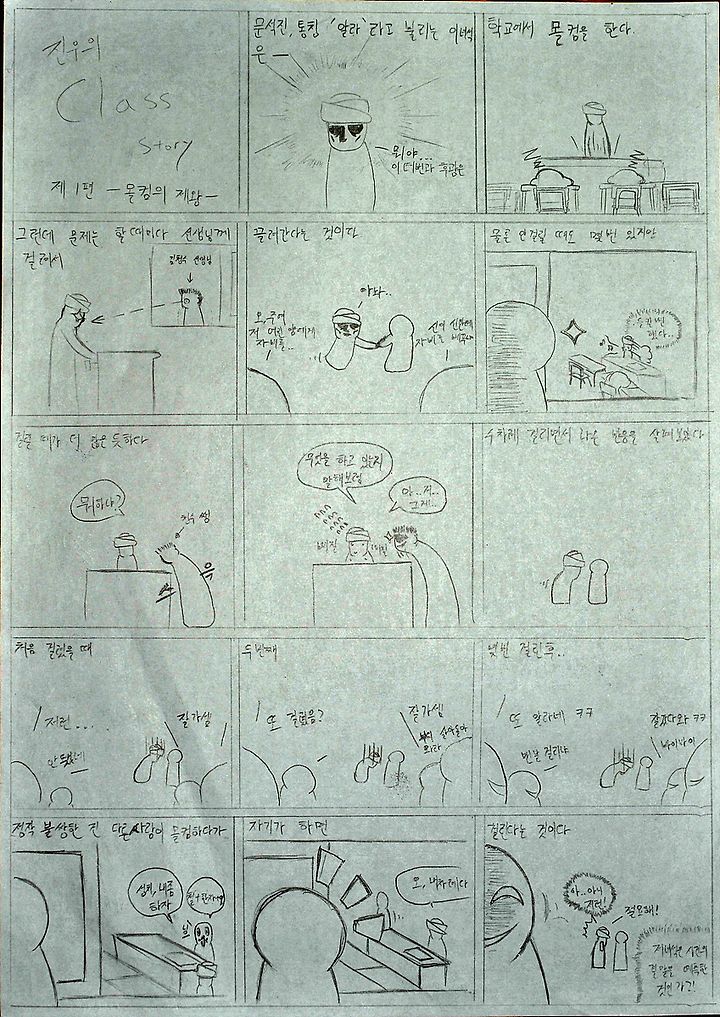 진우의
Class
Story
제 1편 - 몰컴의 제왕 -
문석진, 통칭 '알라' 라고 불리는 이녀석
은 -
뭐야...
이 떠번과 후광은
학교에서 몰컴을 한다.
그런데 문제는 할때마다 선생님께
걸려서
선생님
끌려간다는 것이다
아놔..
오, 주여
저 어린 양에게
자비를..
자비를
몰론 안걸릴 때도 몇번 있지만
걸릴 때가 더 많은 듯하다
뭐하냐?
진수 쌤
무엇을 하고 있는지
말해보렴
아..저..
그게..
수차례 걸리면서 나온 반응을 살펴보았다
처음 걸렸을 때
저런...
안됐네
잘가셈
두번째
또 걸렸음?
잘가셈
살아돌아
와라
몇번 걸린후..
또 알라네 ㅋㅋ
맨날 걸리냐
잘갔다와 ㅋㅋ
바이바이
정작 불쌍한 건 다른사람이 몰컴하다가
내좀
하자
자기가 하면
오, 내차례다
걸린다는 것이다
아..아니
저런!
절묘해!
저녀석은 시간의
흐름을 예측한
것인가?!